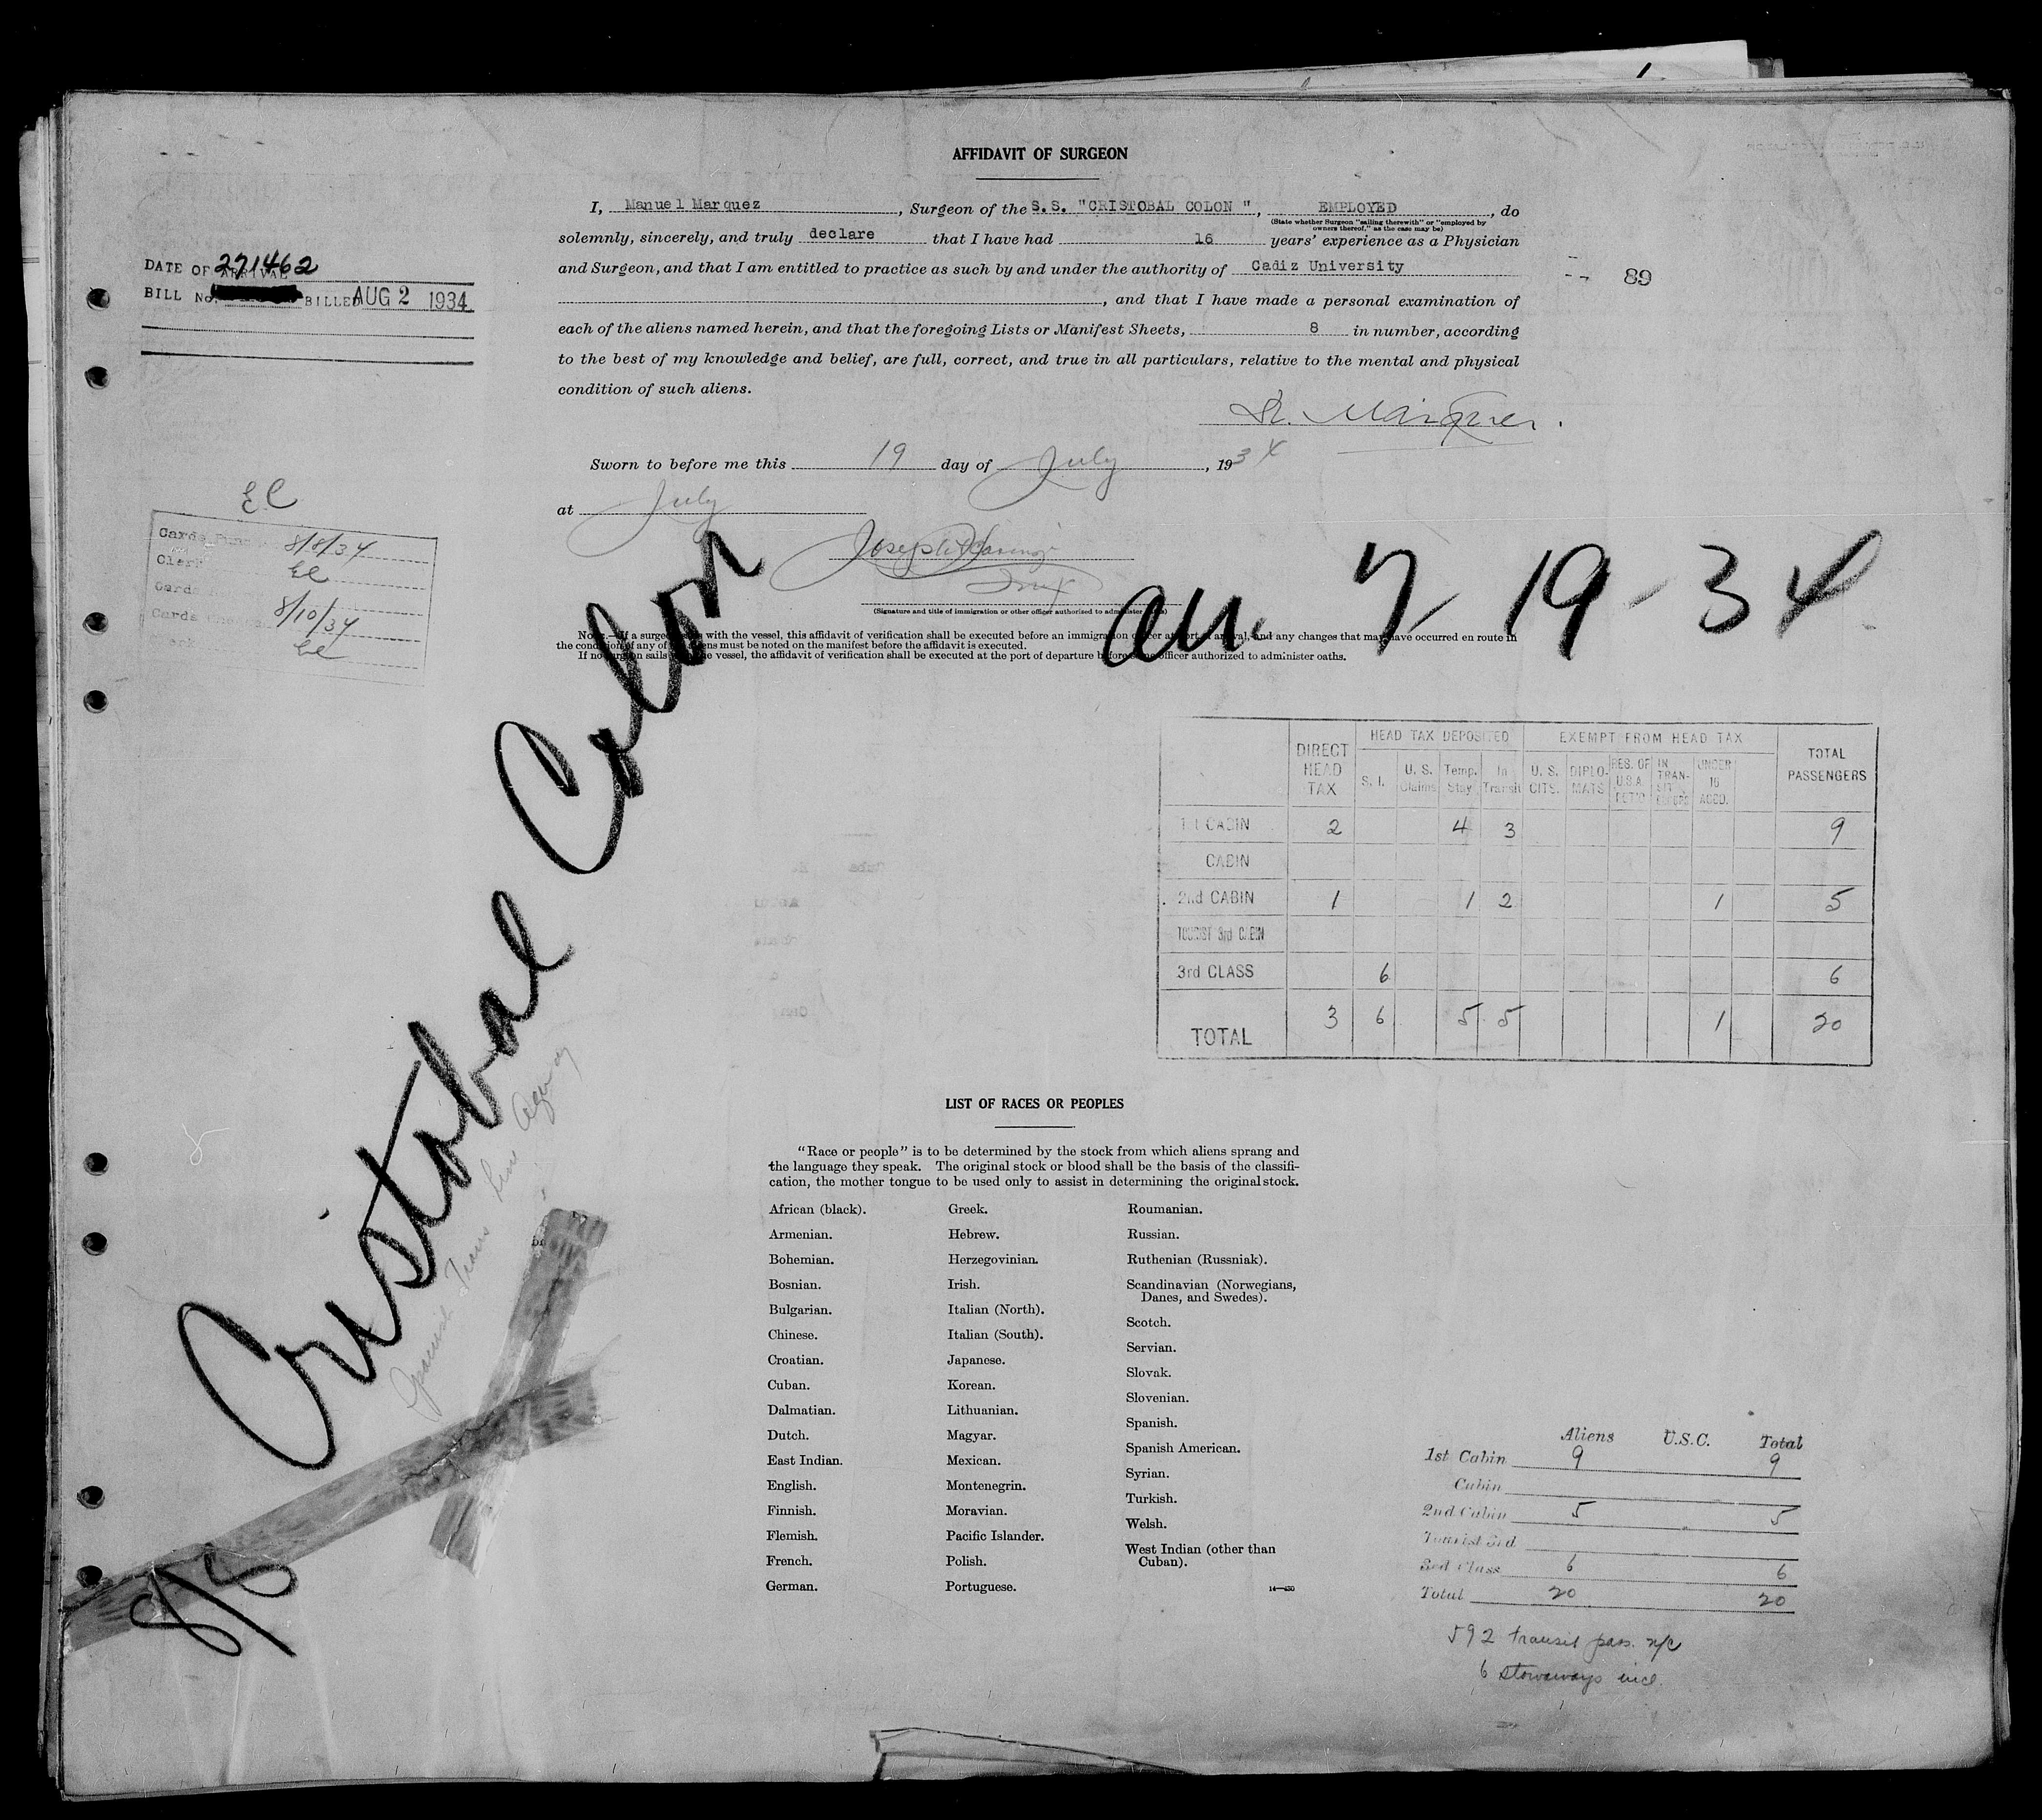 AFFIDAVIT OF SURGEON
I, Manuel Marquez, Surgeon of the S.S. "CRISTOBAL COLON ", EMPLOYED, do
(State whether Surgeon "sailing therewith" or "employed by owners thereof," as the case may be)
solemnly, sincerely, and truly declare that I have had 16 years' experience as a Physician
and Surgeon, and that I am entitled to practice as such by and under the authority of Cadiz University
, and that I have made a personal examination of
each of the aliens named herein, and that the foregoing Lists or Manifest Sheets, 8 in number, according
to the best of my knowledge and belief, are full, correct, and true in all particulars, relative to the mental and physical
condition of such aliens.
DATE OF ARRIVAL
271462
BILL No. BILLED AUG 2 1934
89
Marquez.
Sworn to before me this 19 day of July, 1934
at July
Joseph
(Signature and title of immigration or other officer authorized to administer oaths)
El
Cards 8/8/34
Clerk El
Cards
Cards 8/10/34
El
arr. 7-19-34
Note.—If a surgeon sails with the vessel, this affidavit of verification shall be executed before an immigration officer at port of arrival, and any changes that may have occurred en route in
the condition of any of the aliens must be noted on the manifest before the affidavit is executed.
If no surgeon sails with the vessel, the affidavit of verification shall be executed at the port of departure before some officer authorized to administer oaths.
Cristobal Colon
Spanish Trans Line Agency
8/8
DIRECT HEAD TAX
HEAD TAX DEPOSITED
EXEMPT FROM HEAD TAX
TOTAL PASSENGERS
S. I. U. S. Claims Temp. Stay In Transit U. S. CITS. DIPLO-MATS RES. OF U.S.A. RET'G IN TRAN-SIT UNDER 16 ACCD.
1st CABIN 2 4 3 9
CABIN
2nd CABIN 1 1 2 1 5
TOURIST 3rd CABIN
3rd CLASS 6 6
TOTAL 3 6 5 5 1 20
LIST OF RACES OR PEOPLES
"Race or people" is to be determined by the stock from which aliens sprang and
the language they speak. The original stock or blood shall be the basis of the classifi-
cation, the mother tongue to be used only to assist in determining the original stock.
African (black).
Armenian.
Bohemian.
Bosnian.
Bulgarian.
Chinese.
Croatian.
Cuban.
Dalmatian.
Dutch.
East Indian.
English.
Finnish.
Flemish.
French.
German.
Greek.
Hebrew.
Herzegovinian.
Irish.
Italian (North).
Italian (South).
Japanese.
Korean.
Lithuanian.
Magyar.
Mexican.
Montenegrin.
Moravian.
Pacific Islander.
Polish.
Portuguese.
Roumanian.
Russian.
Ruthenian (Russniak).
Scandinavian (Norwegians,
Danes, and Swedes).
Scotch.
Servian.
Slovak.
Slovenian.
Spanish.
Spanish American.
Syrian.
Turkish.
Welsh.
West Indian (other than
Cuban).
14—430
Aliens U.S.C. Total
1st Cabin 9 9
Cabin
2nd Cabin 5 5
Tourist 3rd
3rd Class 6 6
Total 20 20
592 transit pass. n/c
6 stowaways incl.